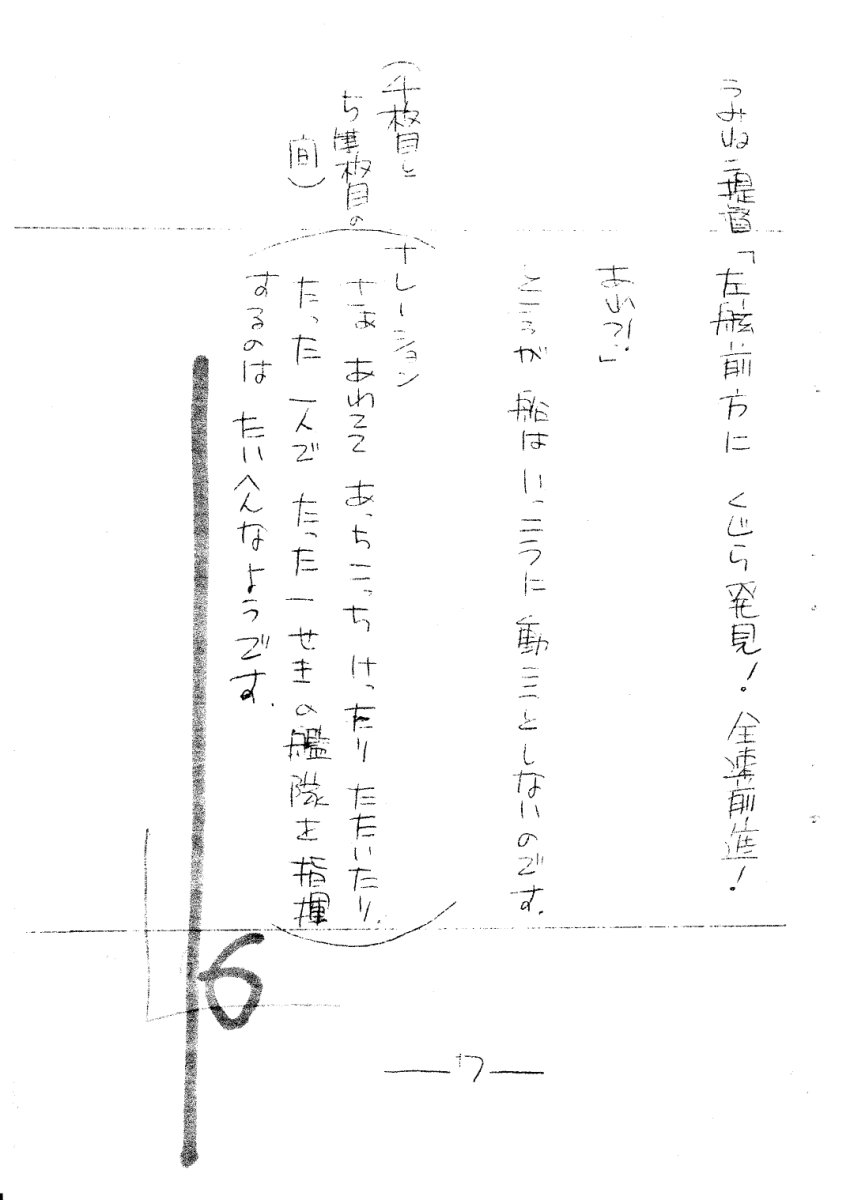 うみねこ提督「左舷前方に くじら発見！ 全速前進！
あれ？！」
ところが 船は いっこうに 動こうとしないのです.
ナレーション
さあ あわてて あっちこっち けったり たたいたり.
たった 一人で たった 一せきの 艦隊を 指揮
するのは たいへんなようです.
枚目と
枚目の
間）
6